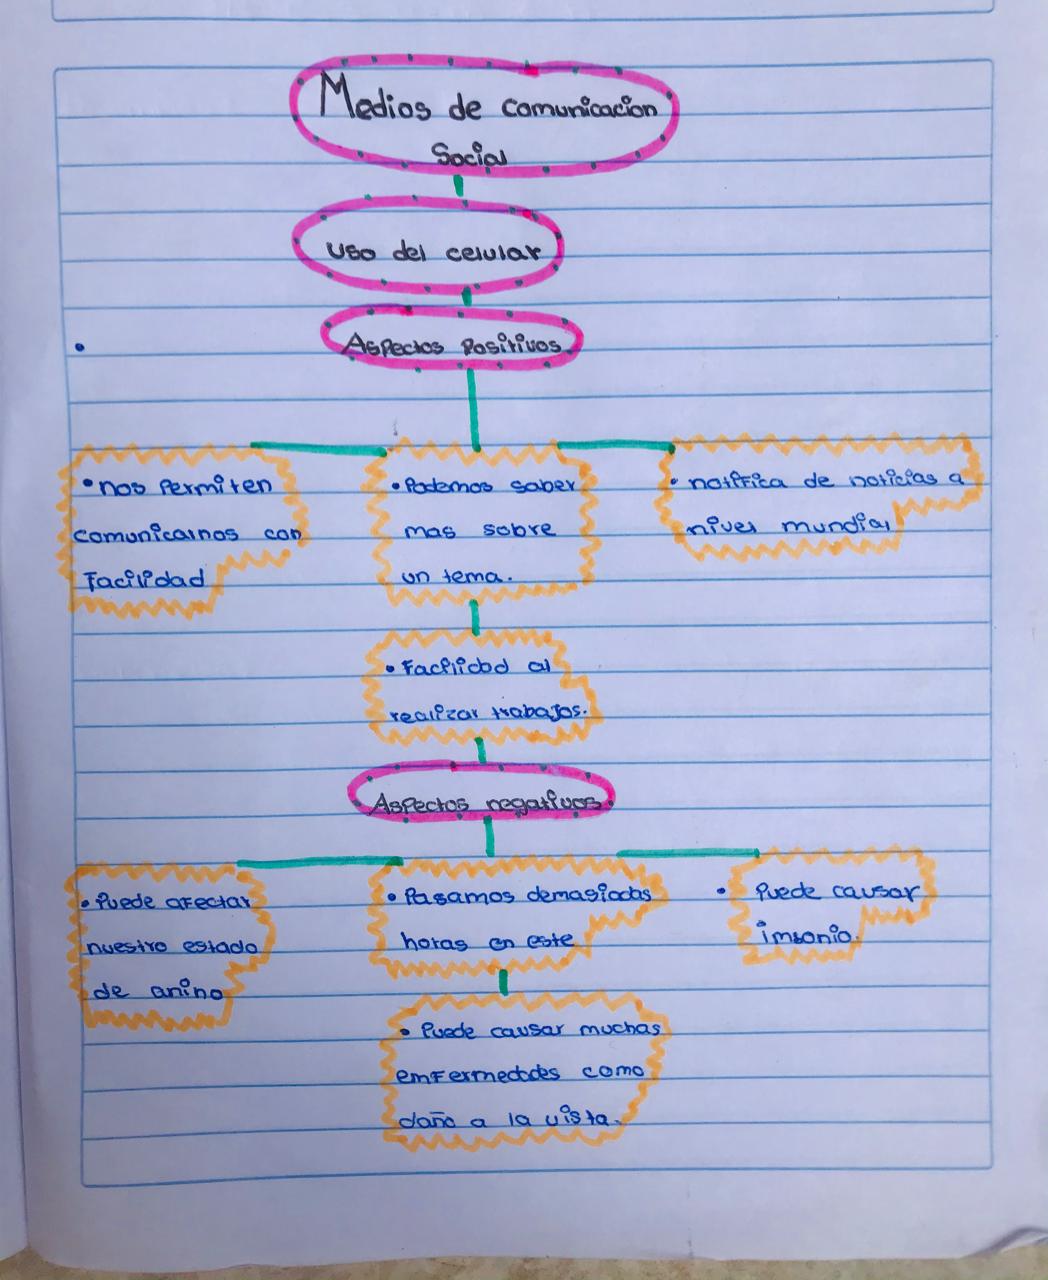 Medios de comunicacion
Social
uso del celular
Aspectos Positivos
• nos Permiten
comunicarnos con
Facilidad
• Podemos saber
mas sobre
un tema.
• notifica de noticias a
nivel mundial
• Facilidad al
realizar trabajos.
Aspectos negativos.
• Puede afectar
nuestro estado
de anino
• Pasamos demasiadas
horas en este
• Puede causar
imsonio.
• Puede causar muchas
emfermedades como
daño a la vista.